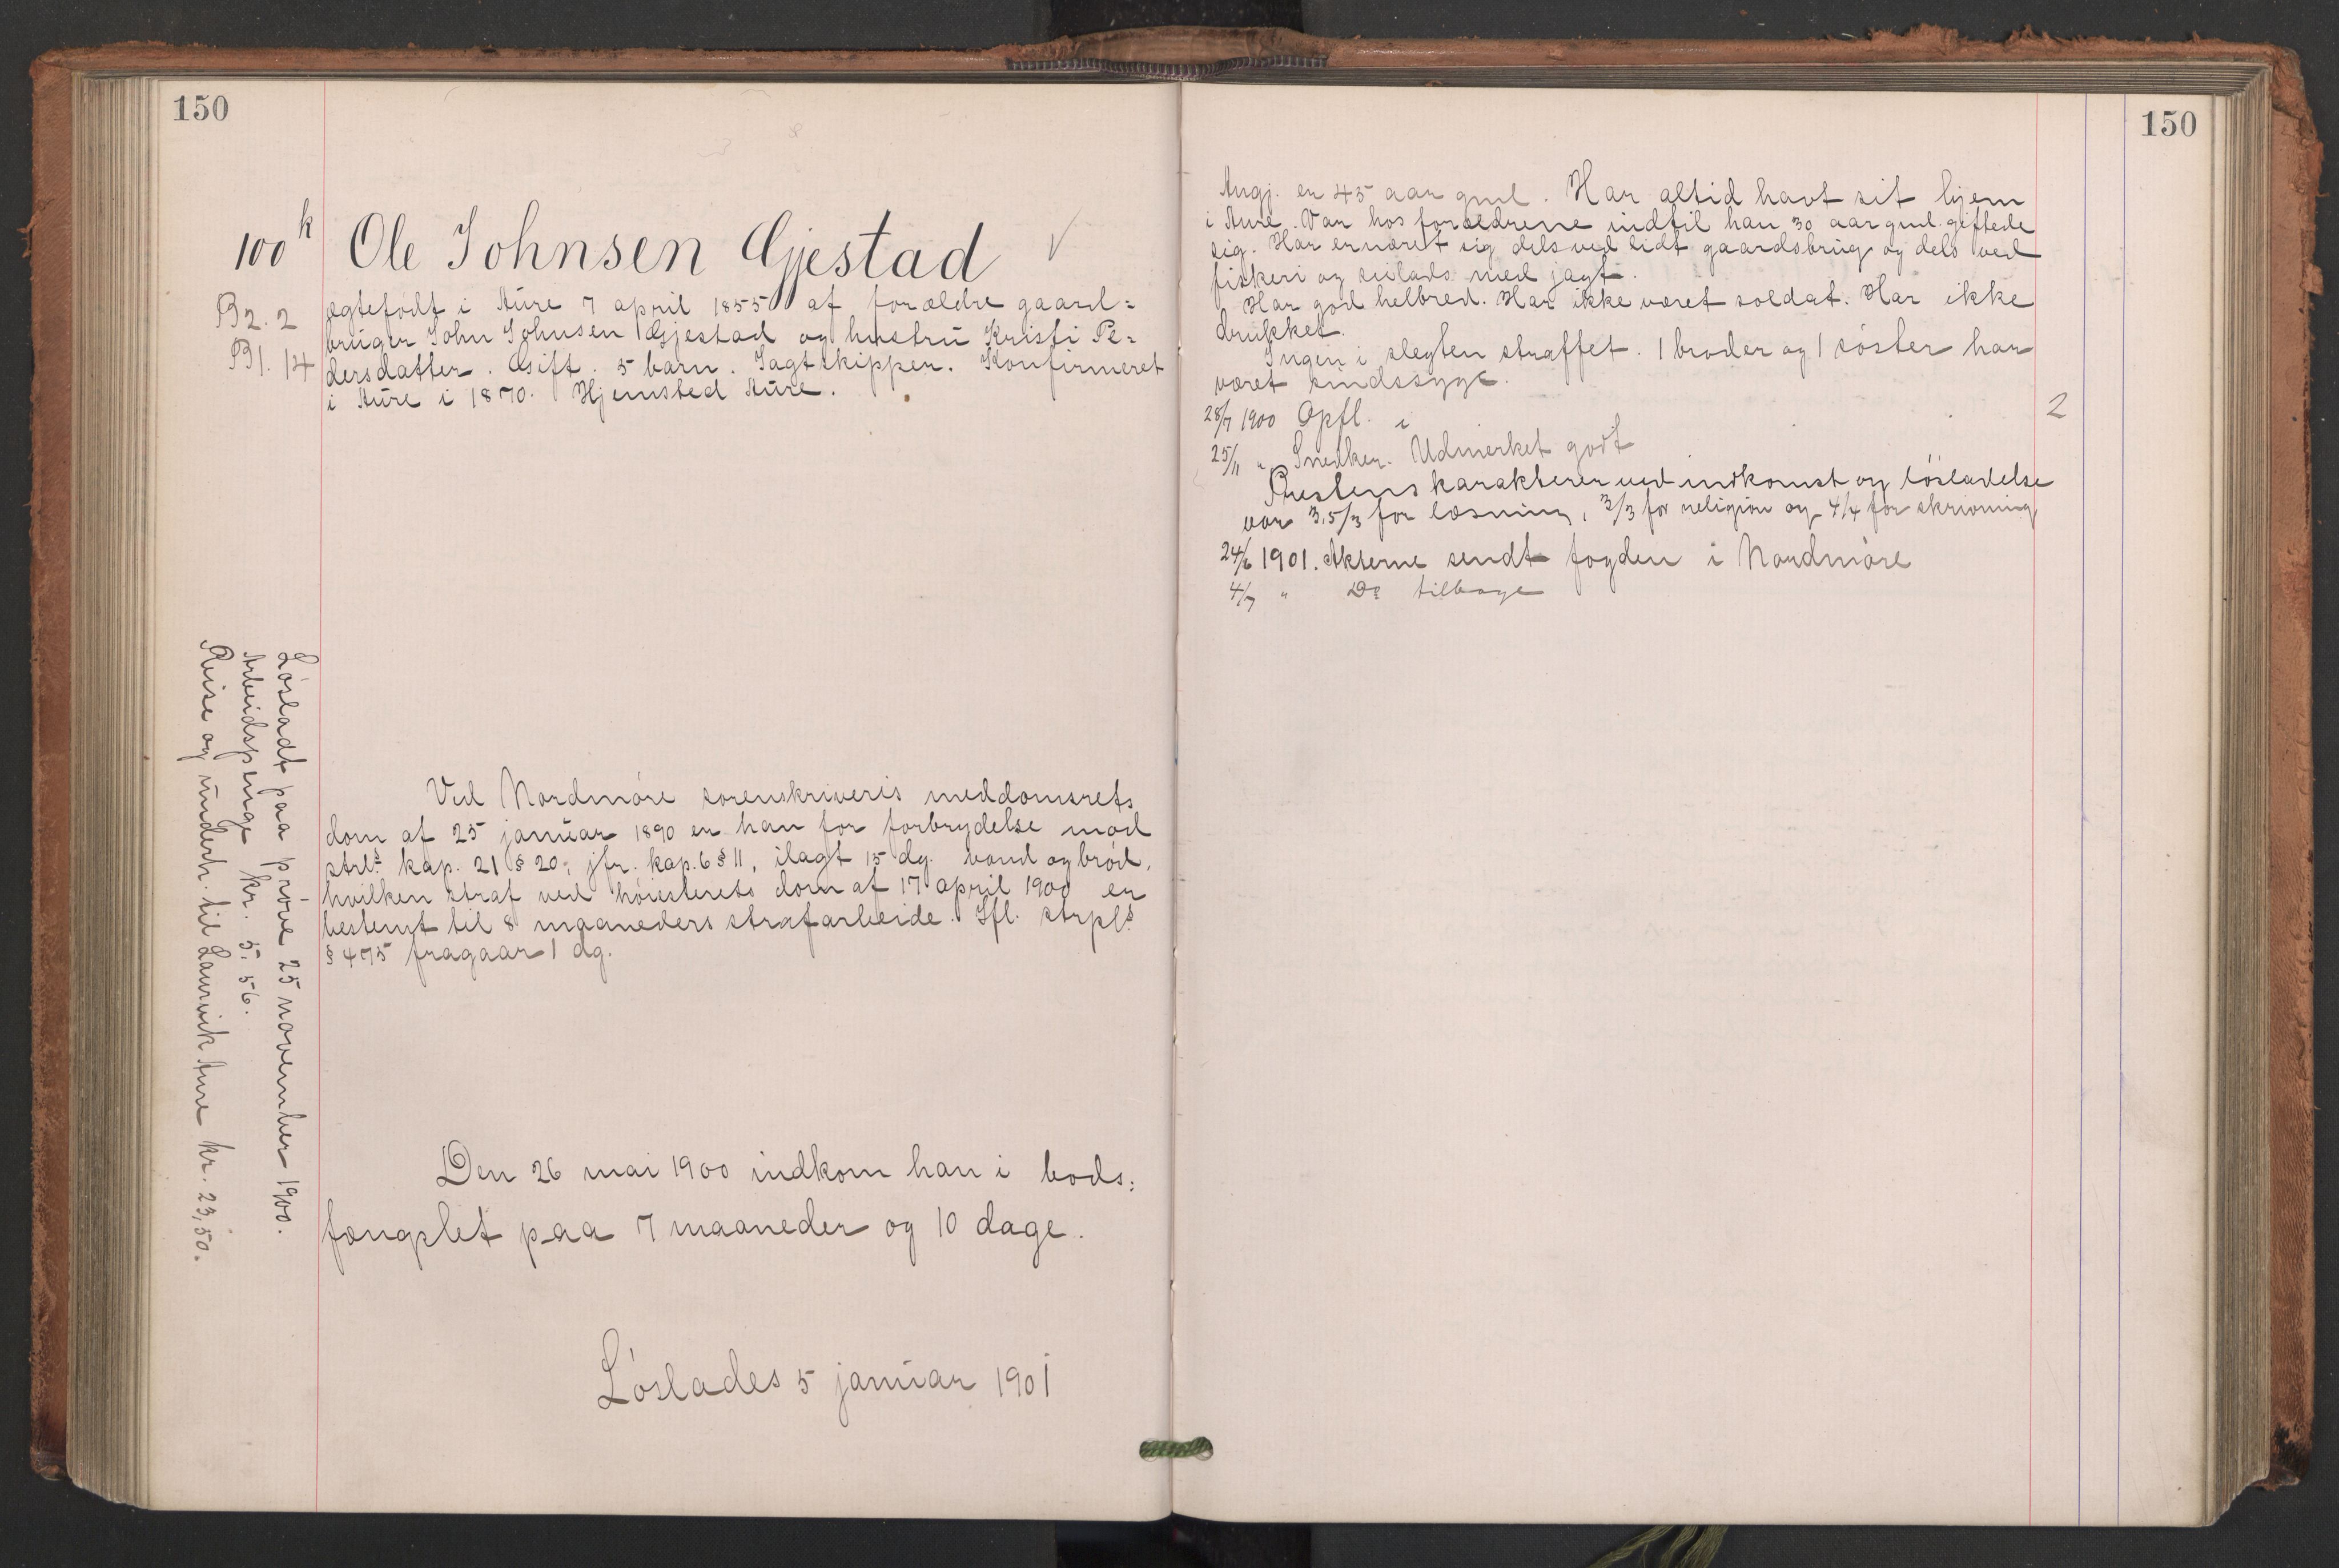 150
100 k Ole Johnsen Gjestad
B2. 2
B1. 14
ægtefødt i Aure 7 april 1855 af forældre gaard=
bruger John Johnsen Gjestad og hustru Kristi Pe=
dersdatter. Gift. 5 barn. Jagtskipper. Konfirmeret
i Aure i 1870. Hjemsted Aure.
Ved Nordmøre sorenskriveris meddomsrets
dom af 25 januar 1890 er han for forbrydelse mod
strl<u>s</u> kap. 21 § 20, jfr. kap. 6 § 11, ilagt 15 dg. vand og brød,
hvilken straf ved høiesterets dom af 17 april 1900 er
bestemt til 8 maaneders strafarbeide. Ifl. strpls
§ 475 fragaar 1 dg.
Den 26 mai 1900 indkom han i bods=
fængslet paa 7 maaneder og 10 dage.
Løslades 5 januar 1901
Løsladt paa prøve 25 november 1900.
Arbeidspenge kr. 5.56.
Reise og underh. til Laurvik Aure kr. 23,50.
150
Angj. er 45 aar gml. Har altid havt sit hjem
i Aure. Var hos forældrene indtil han 30 aar gml. giftede
sig. Har ernæret sig dels ved lidt gaardsbrug og dels ved
fiskeri og seilads med jagt.
Har god helbred. Har ikke været soldat. Har ikke
drukket.
Ingen i slegten straffet. 1 broder og 1 søster har
været sindssyge.
28/7 1900 Opfl. i 2
25/11 " Snedker. Udmerket godt
Prestens karakterer ved indkomst og løsladelse
var 3,5/3 for læsning, 3/3 for religion og 4/4 for skrivning
24/6 1901. Akterne sendt fogden i Nordmøre
4/7 " Do tilbage